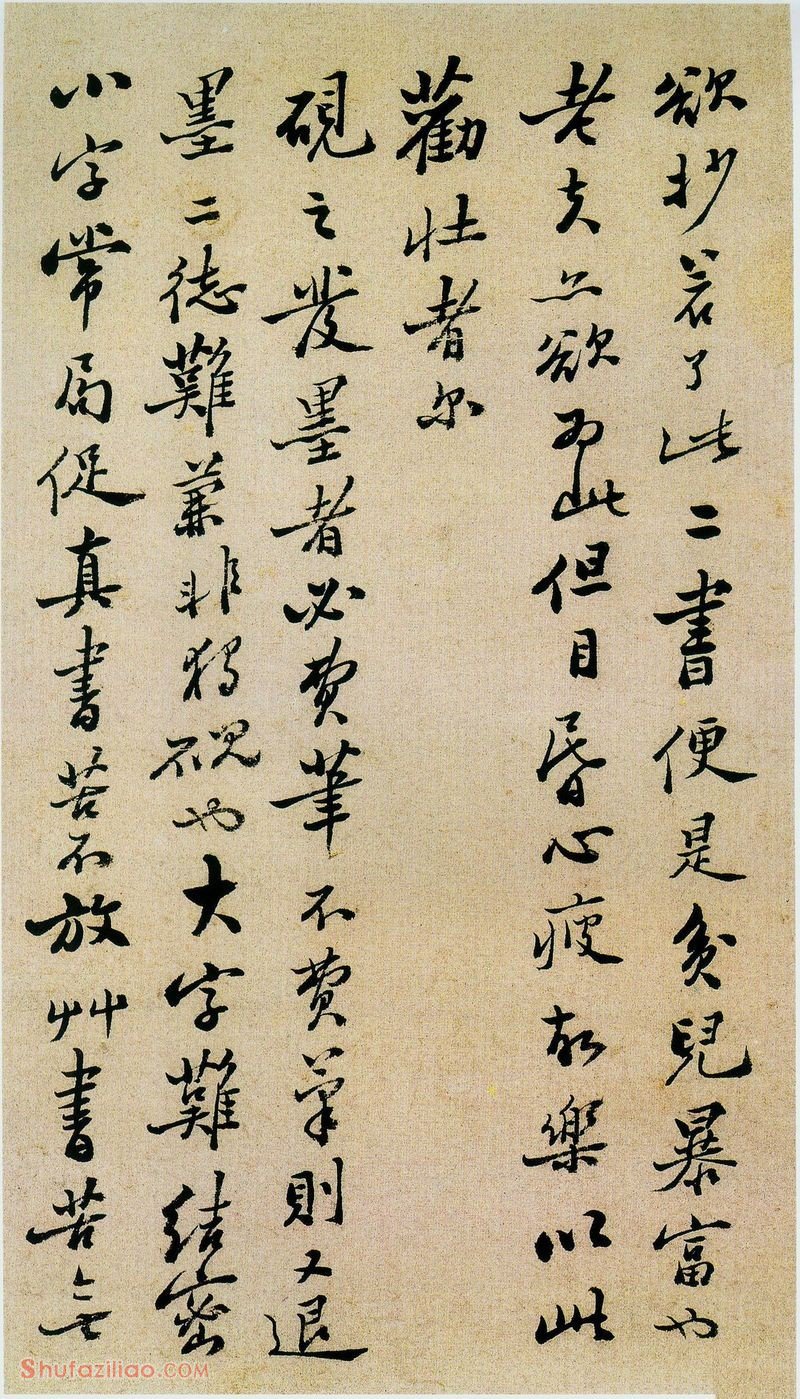 欲抄若了此二書便是貧兒暴富也
老夫亦欲為此但目昏心疲故樂以此
勸壯者尔
硯之發墨者必費筆不費筆則又退
墨二德難兼非獨硯也大字難結密
小字常局促真書苦不放艸書苦無
Shufaziliao.COM